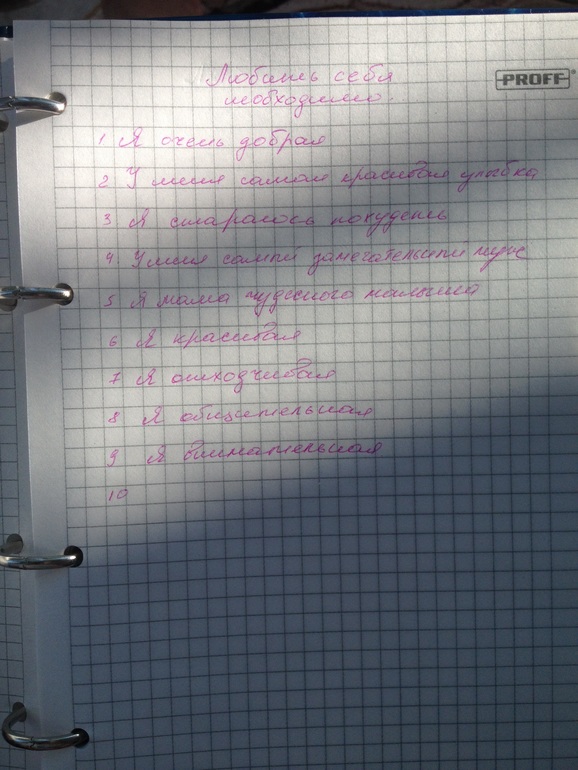 Любить себя
PROFF
необходимо.
1 Я очень добрая
2 У меня самая красивая улыбка
3 Я стараюсь похудеть
4 У меня самый замечательный муж
5 Я мама чудесного малыша
6 Я красивая
7 Я отходчивая
8 Я общительная
9 Я внимательная
10